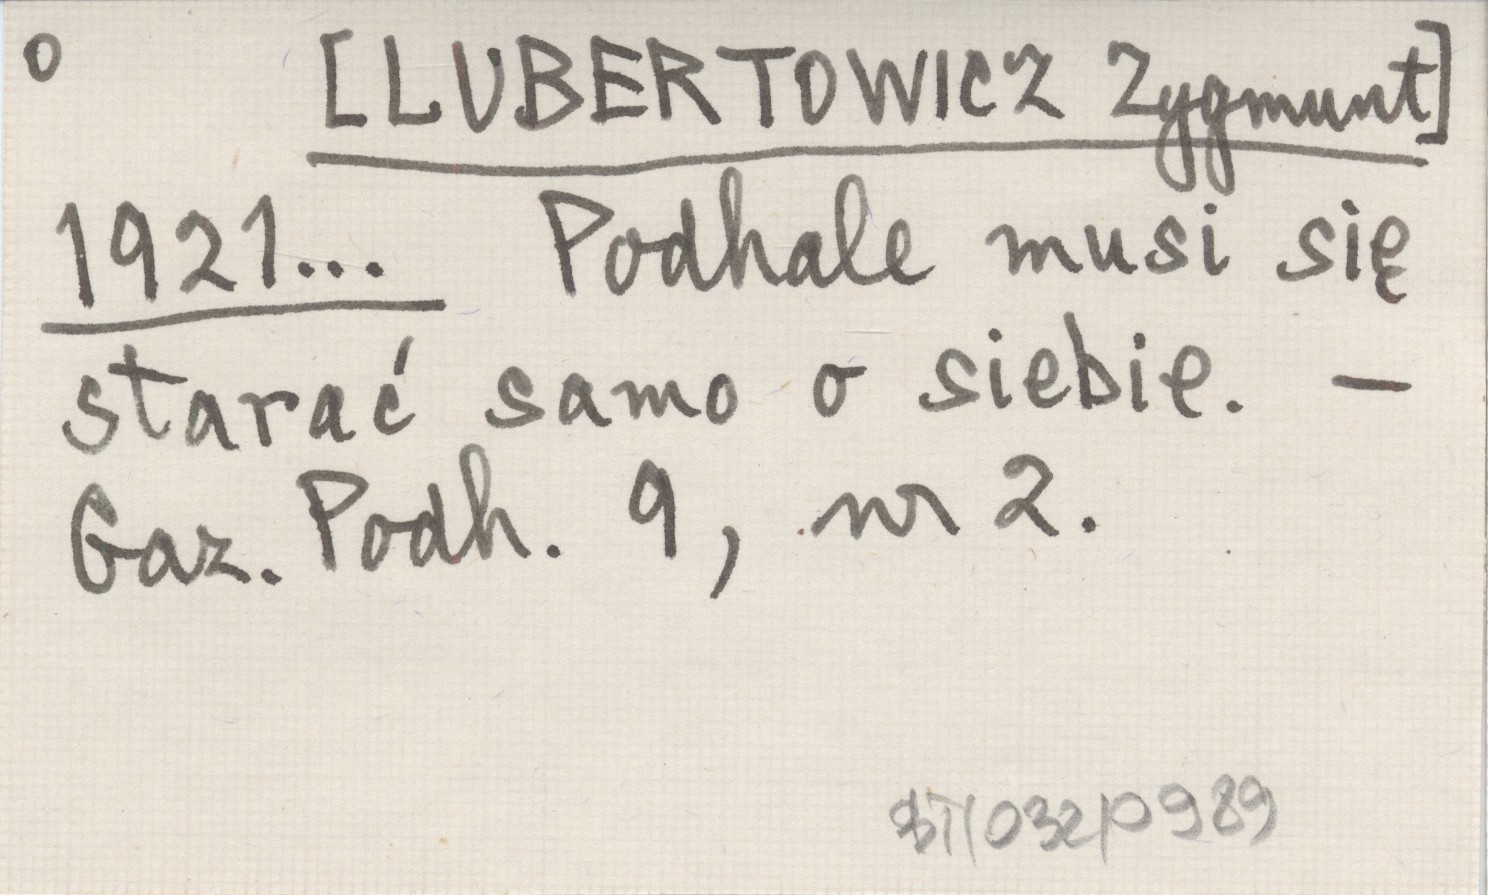 o [LUBERTOWICZ Zygmunt]
1921... Podhale musi się
starać samo o siebie. –
Gaz. Podh. 9, nr 2.
ST/032/0989